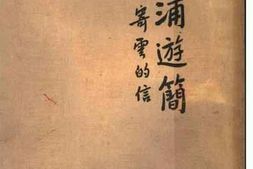 浦遊簡
寄雲的信